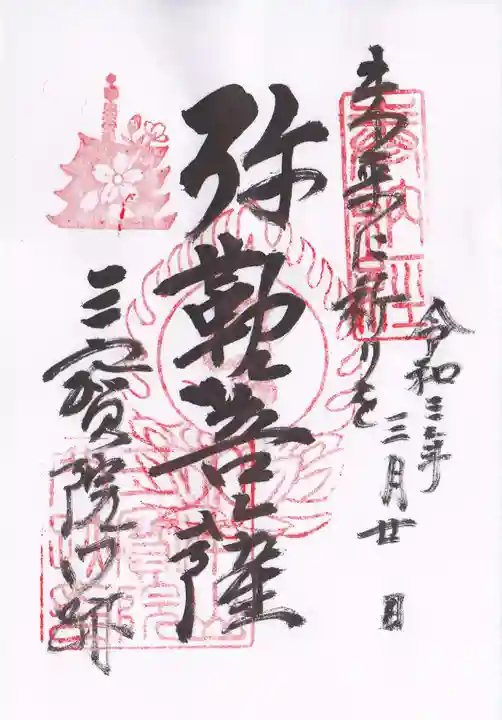 未来に祈りを
令和三年
三月廿日
弥勒菩薩
三寳院門跡